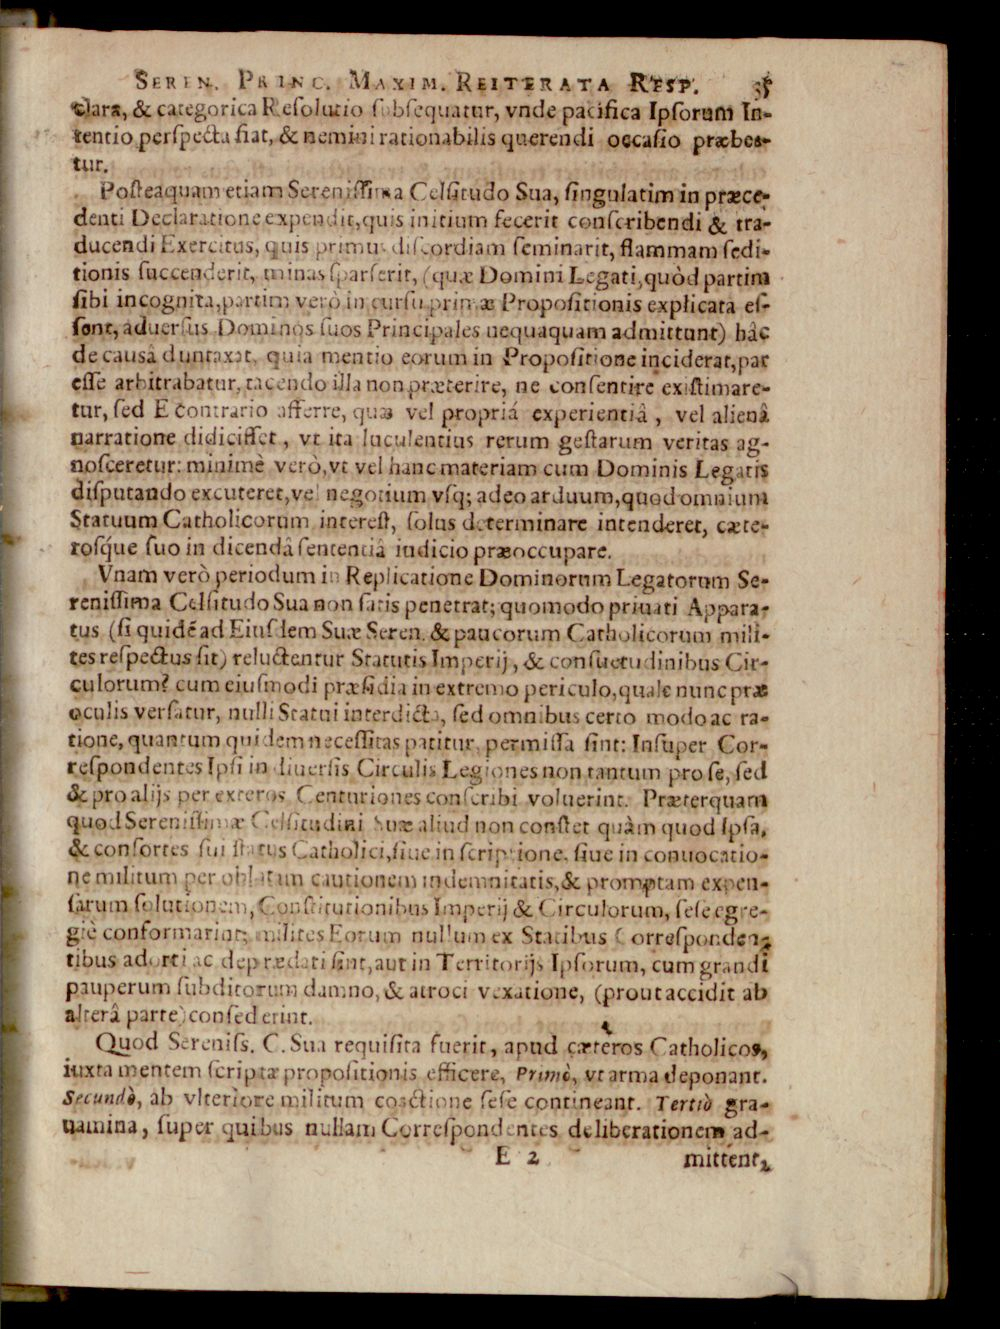 SEREN. PRINC. MAXIM. REITERATA RESP. 35
clara, & categorica Reſolutio ſubſequatur, vnde pacifica Ipſorum In-
tentio perſpecta fiat, & nemini rationabilis querendi occaſio præbea-
tur.
Poſteaquam etiam Sereniſſima Celſitudo Sua, ſingulatim in præce-
denti Declaratione expendit, quis initium fecerit conſcribendi & tra-
ducendi Exercitus, quis primus diſcordiam ſeminarit, flammam ſedi-
tionis ſuccenderit, minas ſparſerit, (quæ Domini Legati, quòd partim
ſibi incognita, partim verò in curſu primæ Propoſitionis explicata eſ-
ſent, aduerſus Dominos ſuos Principales nequaquam admittunt) hâc
de causâ duntaxat, quia mentio eorum in Propoſitione inciderat, par
eſſe arbitrabatur, tacendo illa non præterire, ne conſentire exiſtimare-
tur, ſed E contrario afferre, quæ vel propriá experientiâ, vel alienâ
narratione didiciſſet, vt ita luculentius rerum geſtarum veritas ag-
noſceretur: minimè verò, vt vel hanc materiam cum Dominis Legatis
diſputando excuteret, vel negotium vſq; adeo arduum, quod omnium
Statuum Catholicorum intereſt, ſolus determinare intenderet, cæte-
roſq́ue ſuo in dicendâ ſententiâ iudicio præoccupare.
Vnam verò periodum in Replicatione Dominorum Legatorum Se-
reniſſima Celſitudo Sua non ſatis penetrat; quomodo priuati Appara-
tus (ſi quidẽ ad Eiuſdem Suæ Seren. & paucorum Catholicorum mili-
tes reſpectus ſit) reluctentur Statutis Imperij, & conſuetudinibus Cir-
culorum? cum eiuſmodi præſidia in extremo periculo, quale nunc præ
oculis verſatur, nulli Statui interdicta, ſed omnibus certo modo ac ra-
tione, quantum quidem neceſſitas patitur, permiſſa ſint: Inſuper Cor-
reſpondentes Ipſi in diuerſis Circulis Legiones non tantum pro ſe, ſed
& pro alijs per exteros Centuriones conſcribi voluerint. Præterquam
quod Sereniſſimæ Celſitudini Suæ aliud non conſtet quàm quod Ipſa,
& conſortes ſui ſtatus Catholici, ſiue in ſcriptione, ſiue in conuocatio-
ne militum per oblatam cautionem indemnitatis, & promptam expen-
ſarum ſolutionem, Conſtitutionibus Imperij & Circulorum, ſeſe egre-
giè conformarint; milites Eorum nullum ex Statibus Correſponden-
tibus adorti ac deprædati ſint, aut in Territorijs Ipſorum, cum grandi
pauperum ſubditorum damno, & atroci vexatione, (prout accidit ab
alterâ parte) conſederint.
Quod Sereniſs. C. Sua requiſita fuerit, apud cæteros Catholicos,
iuxta mentem ſcriptæ propoſitionis efficere, Primò, vt arma deponant.
Secundò, ab vlteriore militum coactione ſeſe contineant. Tertiò gra-
uamina, ſuper quibus nullam Correſpondentes deliberationem ad-
E 2 mittent,